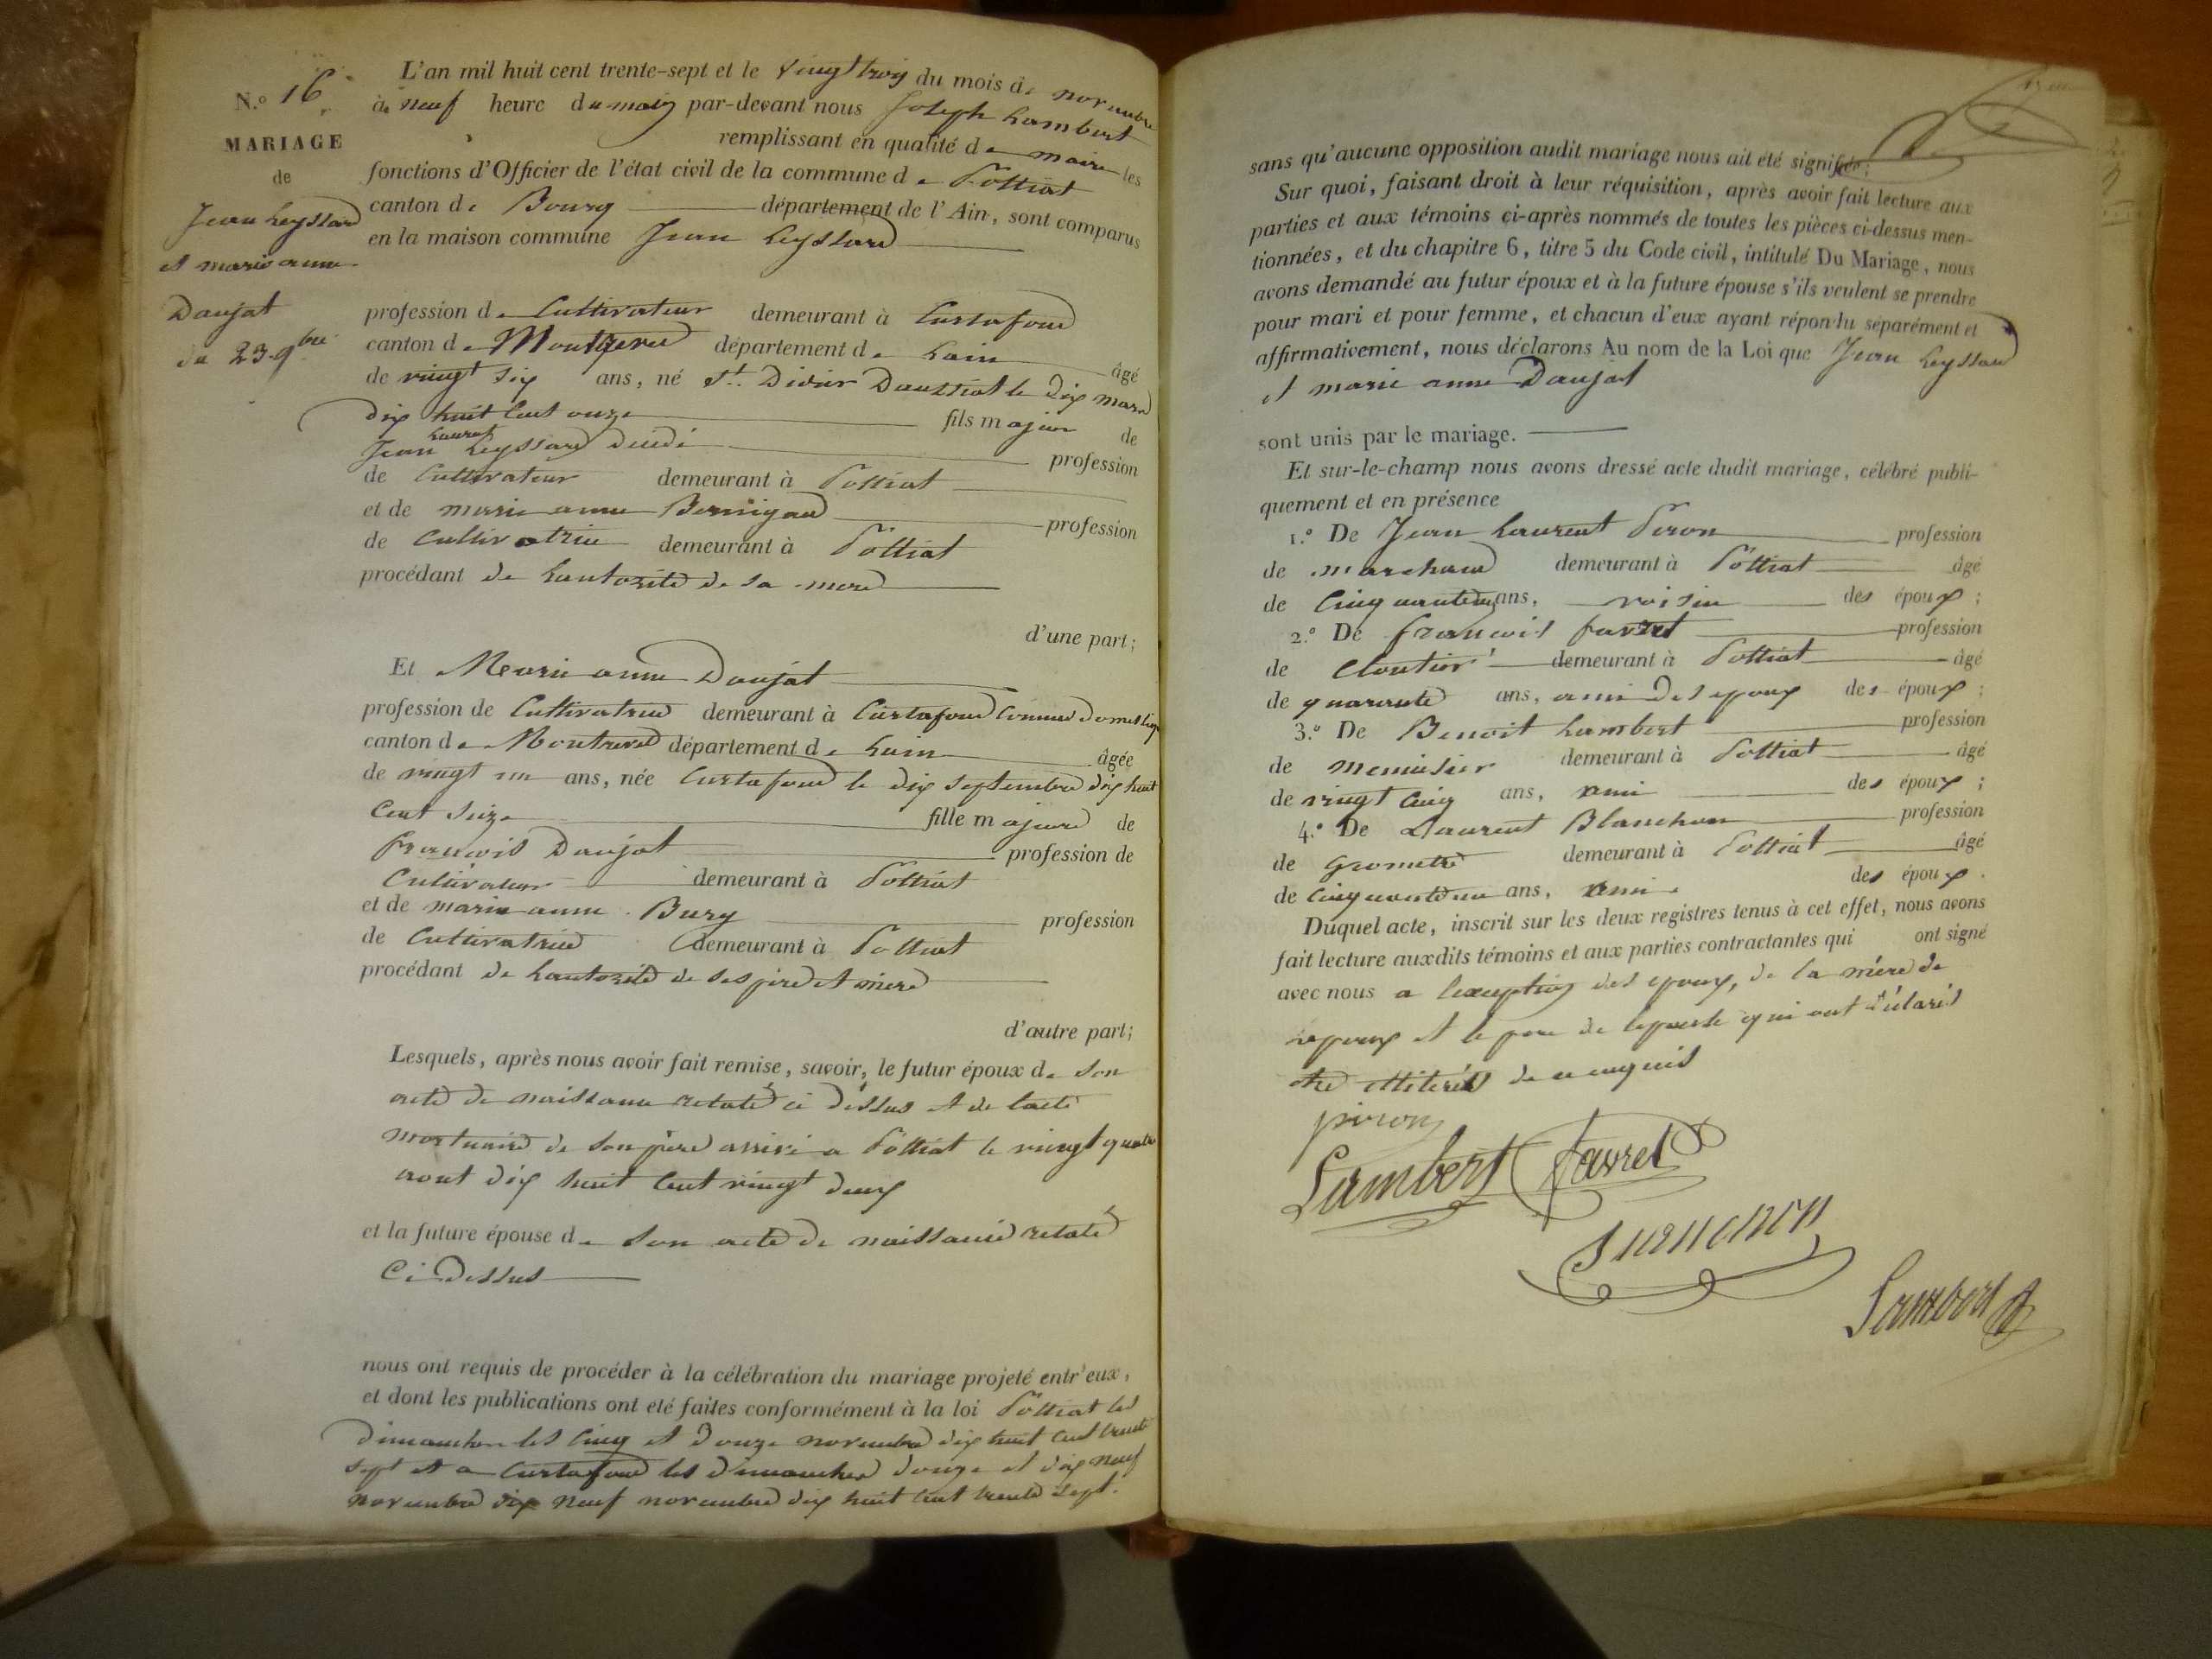 N.º 16
MARIAGE
de
Jean Leyssard
et marie anne
Daujat
du 23 9bre
L'an mil huit cent trente-sept et le vingt trois du mois de novembre
à neuf heure du matin par-devant nous Joseph Lambert
remplissant en qualité de maire les
fonctions d'Officier de l'état civil de la commune de Polliat
canton de Bourg département de l'Ain, sont comparus
en la maison commune Jean Leyssard
profession de Cultivateur demeurant à Curtafond
canton de Montrevel département de Lain âgé
de vingt six ans, né St. Didier Daussiat le dix mars
dix huit cent onze fils majeur de
Jean Laurent Leyssard décédé profession
de Cultivateur demeurant à Polliat
et de marie anne Bernigaud profession
de Cultivatrice demeurant à Polliat
procédant de Lautorité de sa mere
d'une part;
Et Marie anne Daujat
profession de Cultivatrice demeurant à Curtafond comme domestique
canton de Montrevel département de Lain âgée
de vingt un ans, née Curtafond le dix septembre dix huit
cent seize fille majeure de
francois Daujat profession de
Cultivateur demeurant à Polliat
et de marie anne Bury profession
de Cultivatrice demeurant à Polliat
procédant de Lautorité de ses pere et mere
d'autre part;
Lesquels, après nous avoir fait remise, savoir, le futur époux de son
acte de naissance relaté ci dessus et de lacte
mortuaire de son père arrivé a Polliat le vingt quatre
aout dix huit cent vingt deux
et la future épouse de son acte de naissance relaté
Ci dessus
nous ont requis de procéder à la célébration du mariage projeté entr'eux,
et dont les publications ont été faites conformément à la loi Polliat les
dimanches les cinq et douze novembre dix huit cent trente
sept et a Curtafond les dimanches douze et dix neuf
novembre dix neuf novembre dix huit cent trente sept.
sans qu'aucune opposition audit mariage nous ait été signifiée;
Sur quoi, faisant droit à leur réquisition, après avoir fait lecture aux
parties et aux témoins ci-après nommés de toutes les pièces ci-dessus men-
tionnées, et du chapitre 6, titre 5 du Code civil, intitulé Du Mariage, nous
avons demandé au futur époux et à la future épouse s'ils veulent se prendre
pour mari et pour femme, et chacun d'eux ayant répondu séparément et
affirmativement, nous déclarons Au nom de la Loi que Jean Leyssard
et marie anne Daujat
sont unis par le mariage.
Et sur-le-champ nous avons dressé acte dudit mariage, célébré publi-
quement et en présence
1.º De Jean Laurent Piron profession
de marchand demeurant à Polliat âgé
de ans, voisin des époux;
2.º De francois favret profession
de Cloutier demeurant à Polliat âgé
de quarante ans, ami des epoux des époux;
3.º De Benoit Lambert profession
de menuisier demeurant à Polliat âgé
de vingt cinq ans, ami des époux;
4.º De Laurent Blanchon profession
de Geometre demeurant à Polliat âgé
de cinquante un ans, ami des époux.
Duquel acte, inscrit sur les deux registres tenus à cet effet, nous avons
fait lecture auxdits témoins et aux parties contractantes qui ont signé
avec nous a lexception des epoux, de la mère de
lepoux et le pere de lepouse qui ont déclarés
etre illiterés de ce enquis
piron
Lambert favret
Blanchon
Lambert